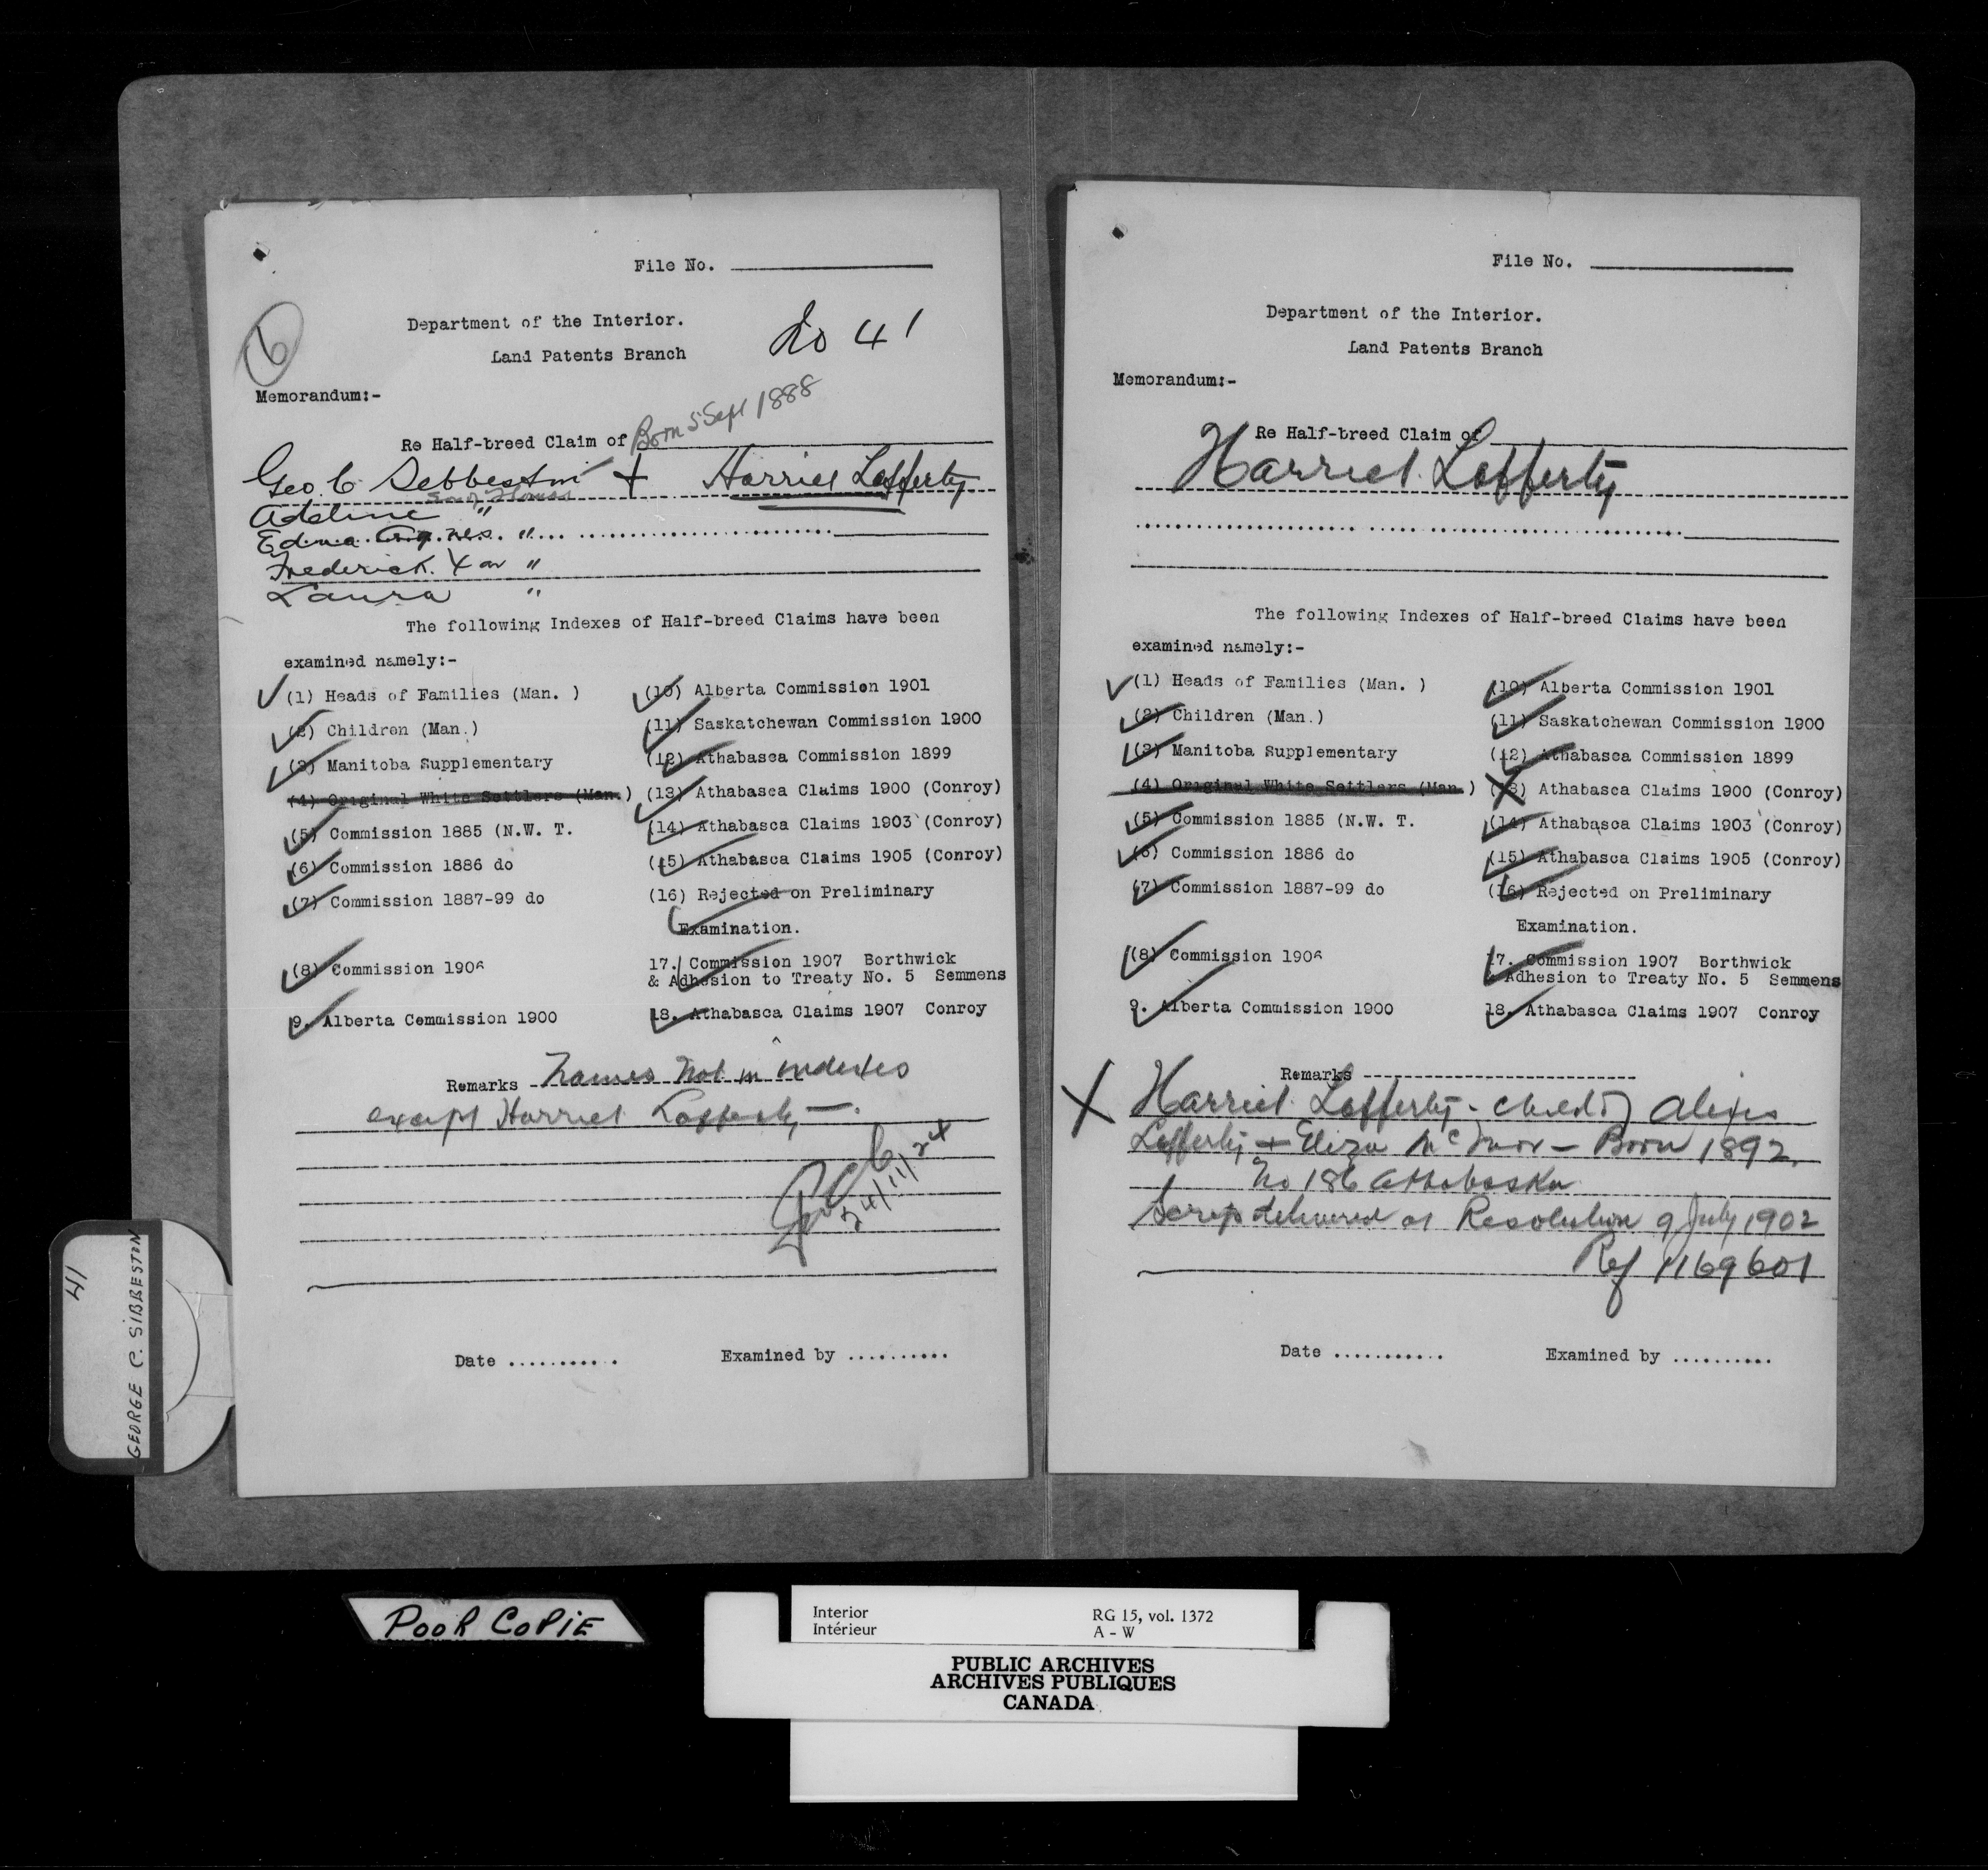 File No.
6
Department of the Interior.
No 41
Land Patents Branch
Memorandum:-
Born 5 Sept 1888
Re Half-breed Claim of
Geo. C. Sebbeston + Harriet Lafferty
Adeline "
Edna Agnes "
Frederick "
Laura "
The following Indexes of Half-breed Claims have been
examined namely:-
(1) Heads of Families (Man. )
(2) Children (Man.)
(3) Manitoba Supplementary
(4) Original White Settlers (Man.)
(5) Commission 1885 (N.W. T.
(6) Commission 1886 do
(7) Commission 1887-99 do
(8) Commission 1906
9. Alberta Commission 1900
(10) Alberta Commission 1901
(11) Saskatchewan Commission 1900
(12) Athabasca Commission 1899
(13) Athabasca Claims 1900 (Conroy)
(14) Athabasca Claims 1903 (Conroy)
(15) Athabasca Claims 1905 (Conroy)
(16) Rejected on Preliminary
Examination.
17. Commission 1907 Borthwick
& Adhesion to Treaty No. 5 Semmens
18. Athabasca Claims 1907 Conroy
Remarks Names not in indexes
except Harriet Lafferty —.
24/11/24
Date ...........
Examined by ..........
File No.
Department of the Interior.
Land Patents Branch
Memorandum:-
Re Half-breed Claim of
Harriet Lafferty
The following Indexes of Half-breed Claims have been
examined namely:-
(1) Heads of Families (Man. )
(2) Children (Man.)
(3) Manitoba Supplementary
(4) Original White Settlers (Man.)
(5) Commission 1885 (N.W. T.
(6) Commission 1886 do
(7) Commission 1887-99 do
(8) Commission 1906
9. Alberta Commission 1900
(10) Alberta Commission 1901
(11) Saskatchewan Commission 1900
(12) Athabasca Commission 1899
(13) Athabasca Claims 1900 (Conroy)
(14) Athabasca Claims 1903 (Conroy)
(15) Athabasca Claims 1905 (Conroy)
(16) Rejected on Preliminary
Examination.
17. Commission 1907 Borthwick
& Adhesion to Treaty No. 5 Semmens
18. Athabasca Claims 1907 Conroy
Remarks
X Harriet Lafferty - child of Alexis
Lafferty + Eliza — Born 1892.
No 186 Athabaska
Scrip delivered at Resolution 9 July 1902
Ref 1169601
Date ...........
Examined by ..........
41
GEORGE C. SIBBESTON
POOR COPIE
Interior
Intérieur
RG 15, vol. 1372
A - W
PUBLIC ARCHIVES
ARCHIVES PUBLIQUES
CANADA